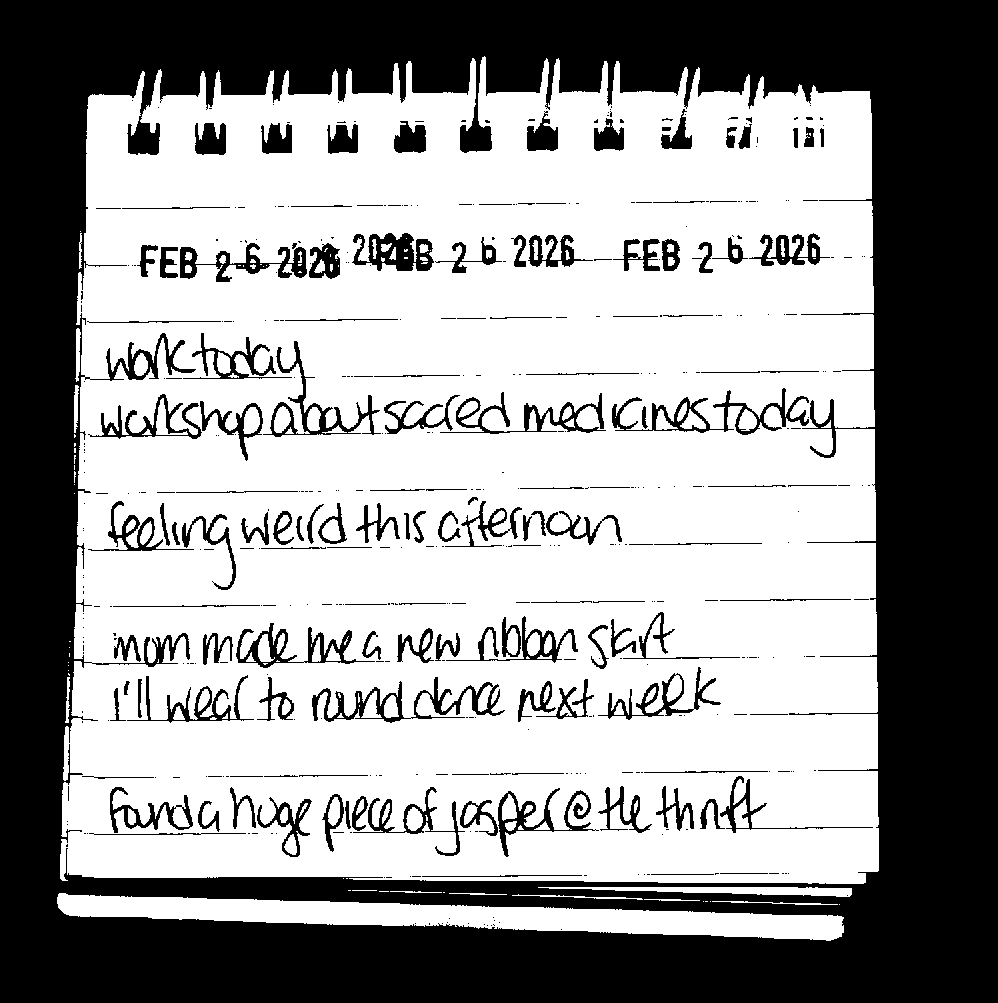 FEB 26 2026 2026 FEB 26 2026 FEB 26 2026
work today
workshop about sacred medicines today
feeling weird this afternoon
mom made me a new ribbon skirt
I'll wear to round dance next week
found a huge piece of jasper @ the thrift